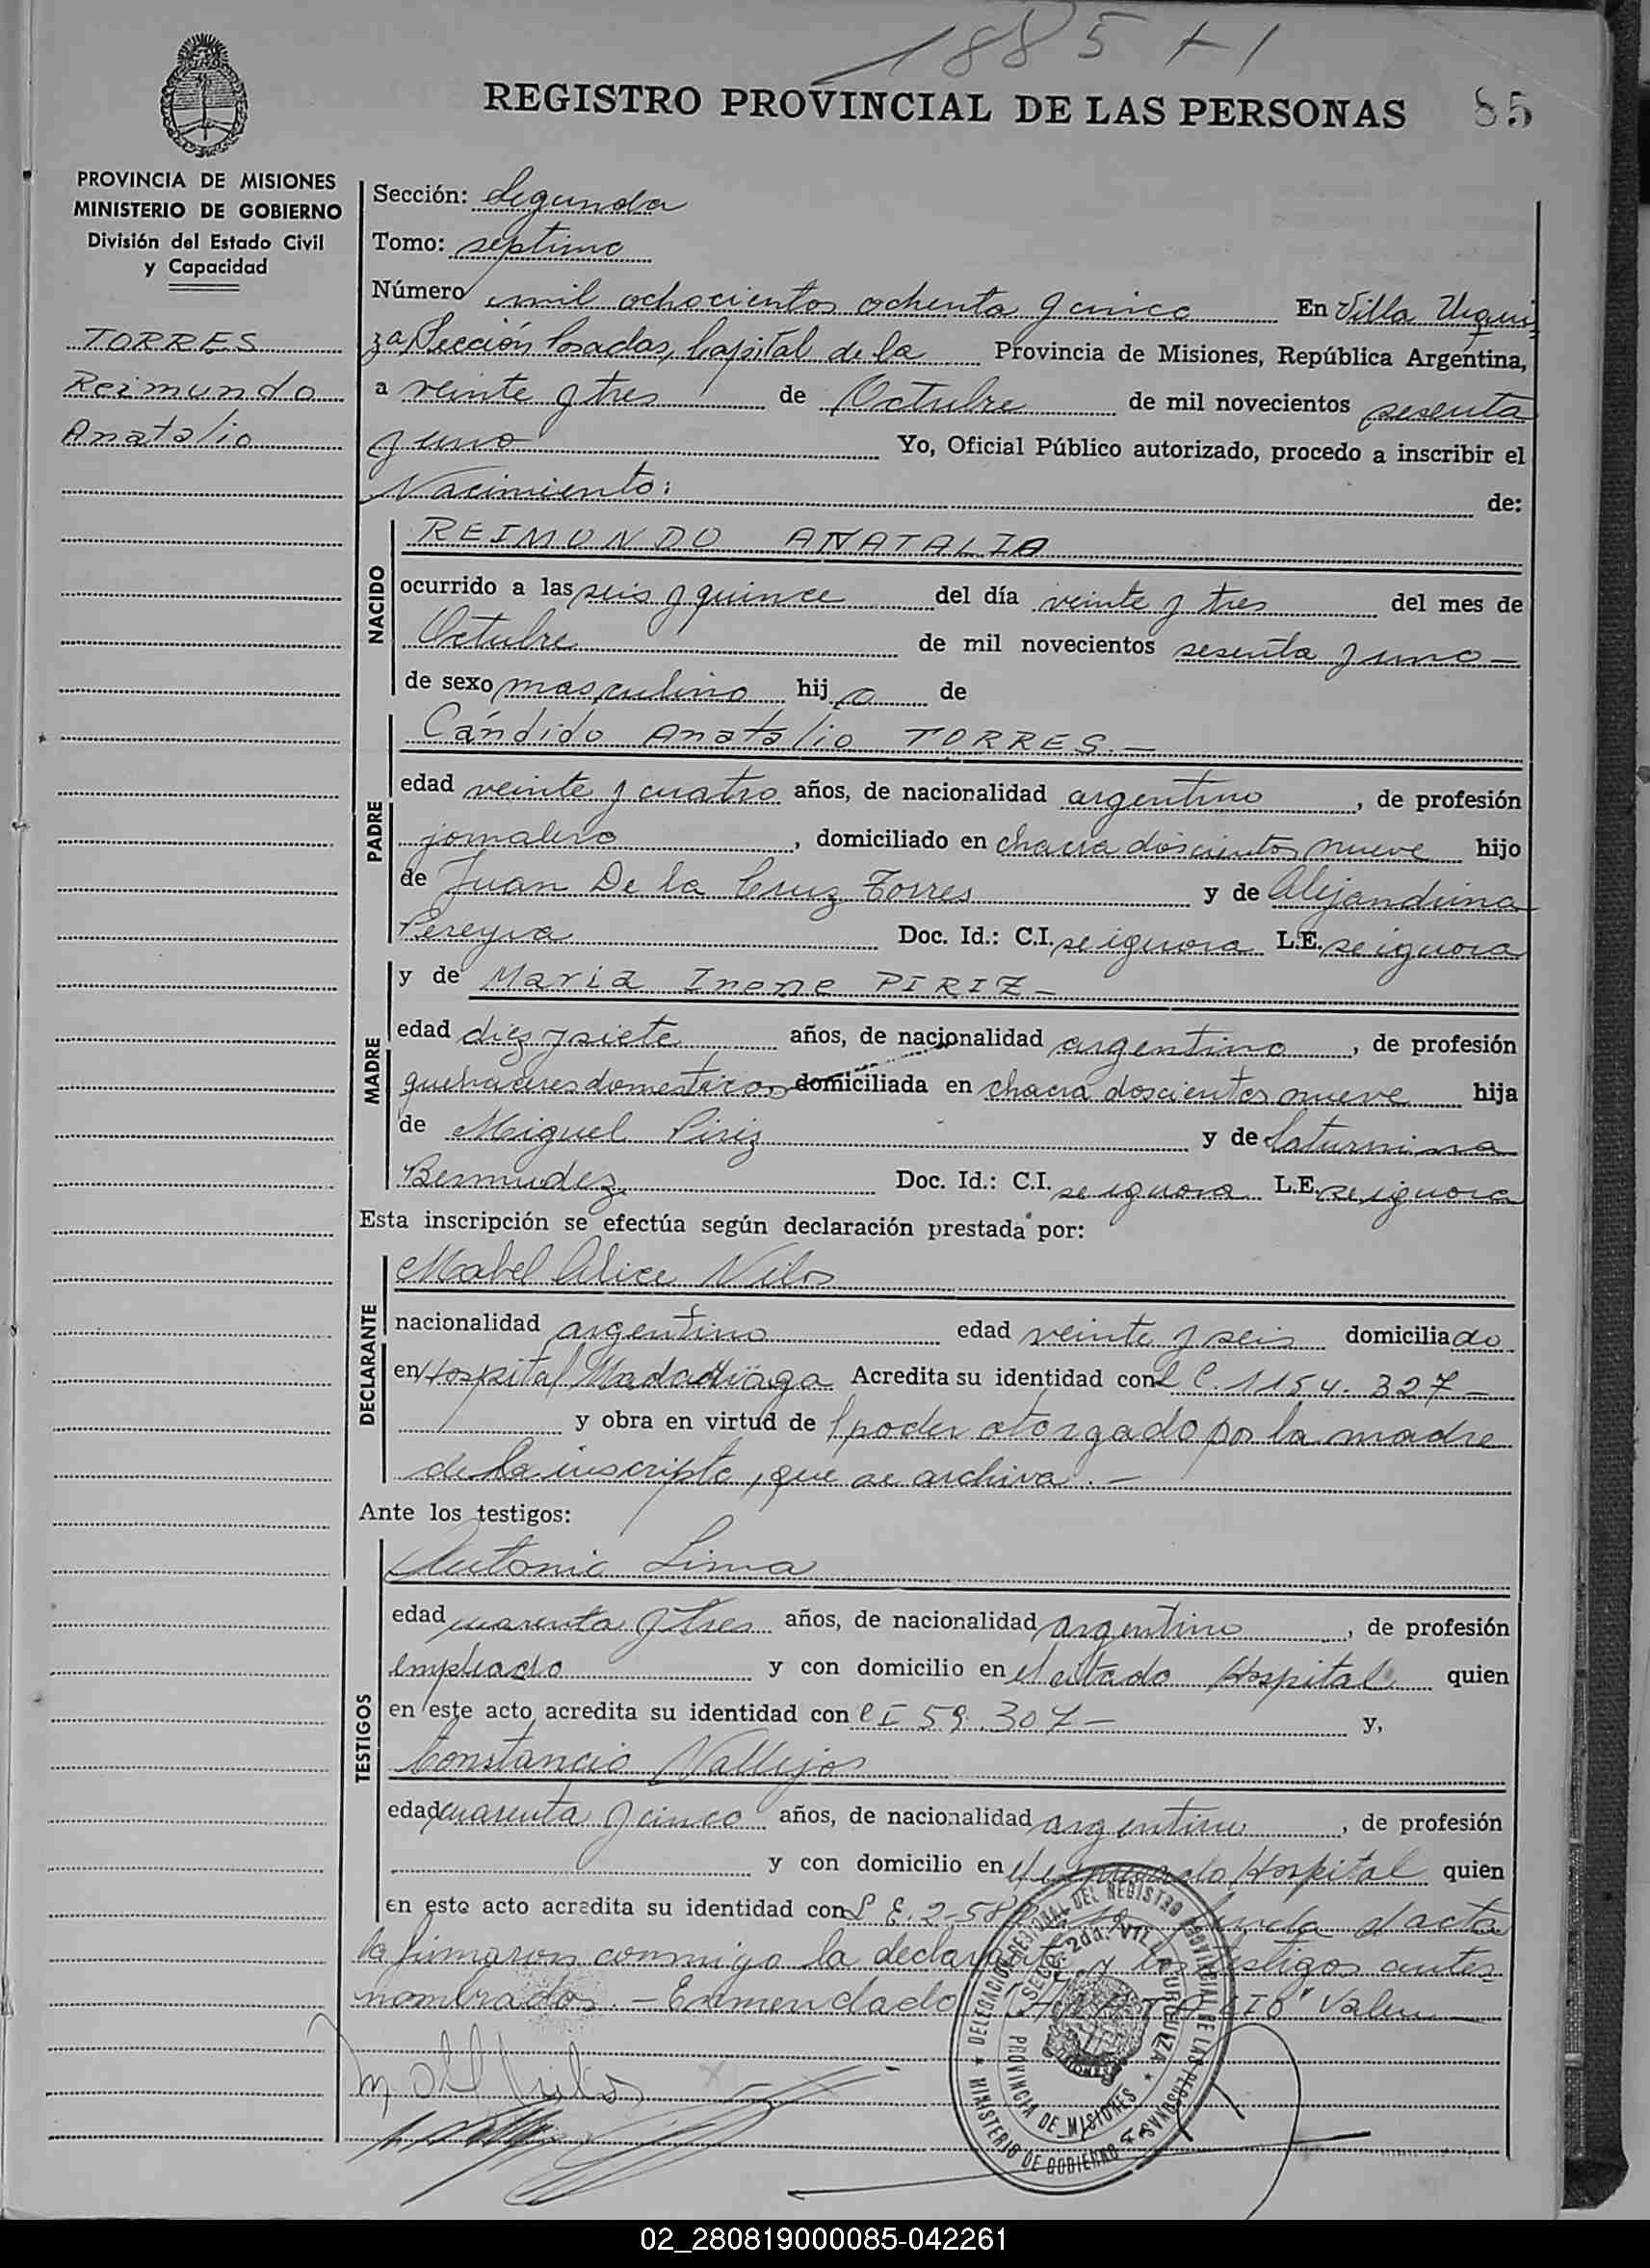 1885 + 1
REGISTRO PROVINCIAL DE LAS PERSONAS 85
PROVINCIA DE MISIONES
MINISTERIO DE GOBIERNO
División del Estado Civil
y Capacidad
TORRES
Reimundo
Anatalio
Sección: Segunda
Tomo: septimo
Número mil ochocientos ochenta y cinco En Villa Urqui
za Sección Posadas, Capital de la Provincia de Misiones, República Argentina,
a veinte y tres de Octubre de mil novecientos sesenta
y uno Yo, Oficial Público autorizado, procedo a inscribir el
Nacimiento: de:
NACIDO
REIMUNDO ANATALIO
ocurrido a las seis y quince del día veinte y tres del mes de
Octubre de mil novecientos sesenta y uno —
de sexo masculino hijo de
PADRE
Cándido Anatalio TORRES. —
edad veinte y cuatro años, de nacionalidad argentino, de profesión
jornalero, domiciliado en chacra doscientos nueve hijo
de Juan De la Cruz Torres y de Alejandrina
Pereyra Doc. Id.: C.I. se ignora L.E. se ignora
MADRE
y de Maria Inene PIRIZ —
edad diez y siete años, de nacionalidad argentino, de profesión
quehaceres domesticos domiciliada en chacra doscientos nueve hija
de Miguel Piriz y de Saturnina
Bermudez Doc. Id.: C.I. se ignora L.E. se ignora
Esta inscripción se efectúa según declaración prestada por:
DECLARANTE
Mabel Alice Nilos
nacionalidad argentino edad veinte y seis domiciliado
en Hospital Madariaga Acredita su identidad con L C. 1154.327 —
y obra en virtud de poder otorgado por la madre
de la inscripta, que se archiva. —
Ante los testigos:
TESTIGOS
Antonio Lima
edad cuarenta y tres años, de nacionalidad argentino, de profesión
empleado y con domicilio en el citado Hospital quien
en este acto acredita su identidad con C I 59.307 — y,
Constancio Vallejos
edad cuarenta y cinco años, de nacionalidad argentino, de profesión
y con domicilio en el Hospital quien
en este acto acredita su identidad con L E. 2-58 el acta
la firmaron conmigo la declarante y los testigos antes
nombrados. — Enmendado "ANATALIO" Vale
DELEGACION REGIONAL DEL REGISTRO PROVINCIAL DE LAS PERSONAS
MINISTERIO DE GOBIERNO
SECC. 2da. VILLA URQUIZA
PROVINCIA DE MISIONES
02_280819000085-042261